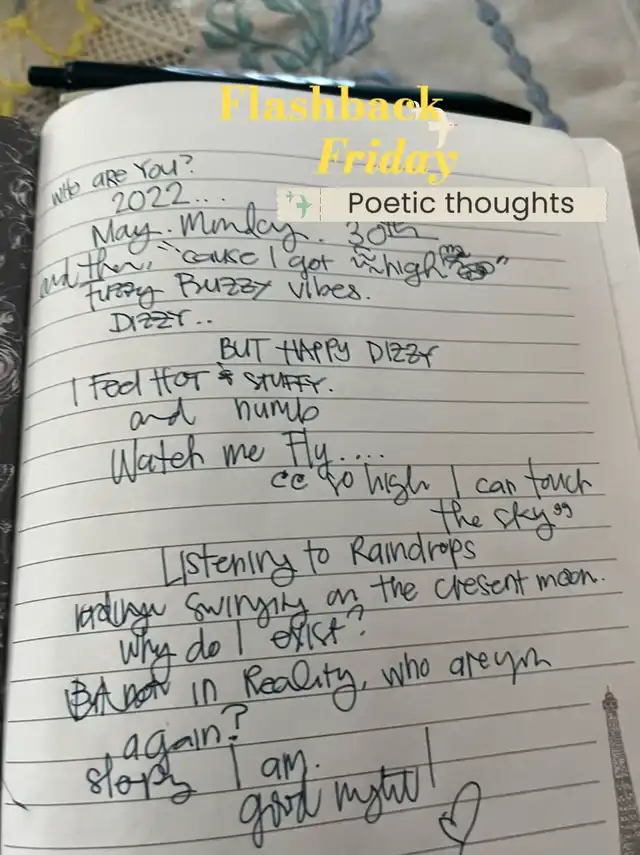 Flashback
Friday
Poetic thoughts
WHO ARE YOU?
2022...
May. Monday. 30th
and then, "cause I got high"
FUZZY BUZZY vibes.
DIZZY..
BUT HAPPY DIZZY
I FEEL HOT & STUFFY.
and numb
Watch me Fly....
"so high I can touch
the sky"
Listening to Raindrops
swinging on the cresent moon.
Why do I exist?
in Reality, who are you
again?
I am.
good night!